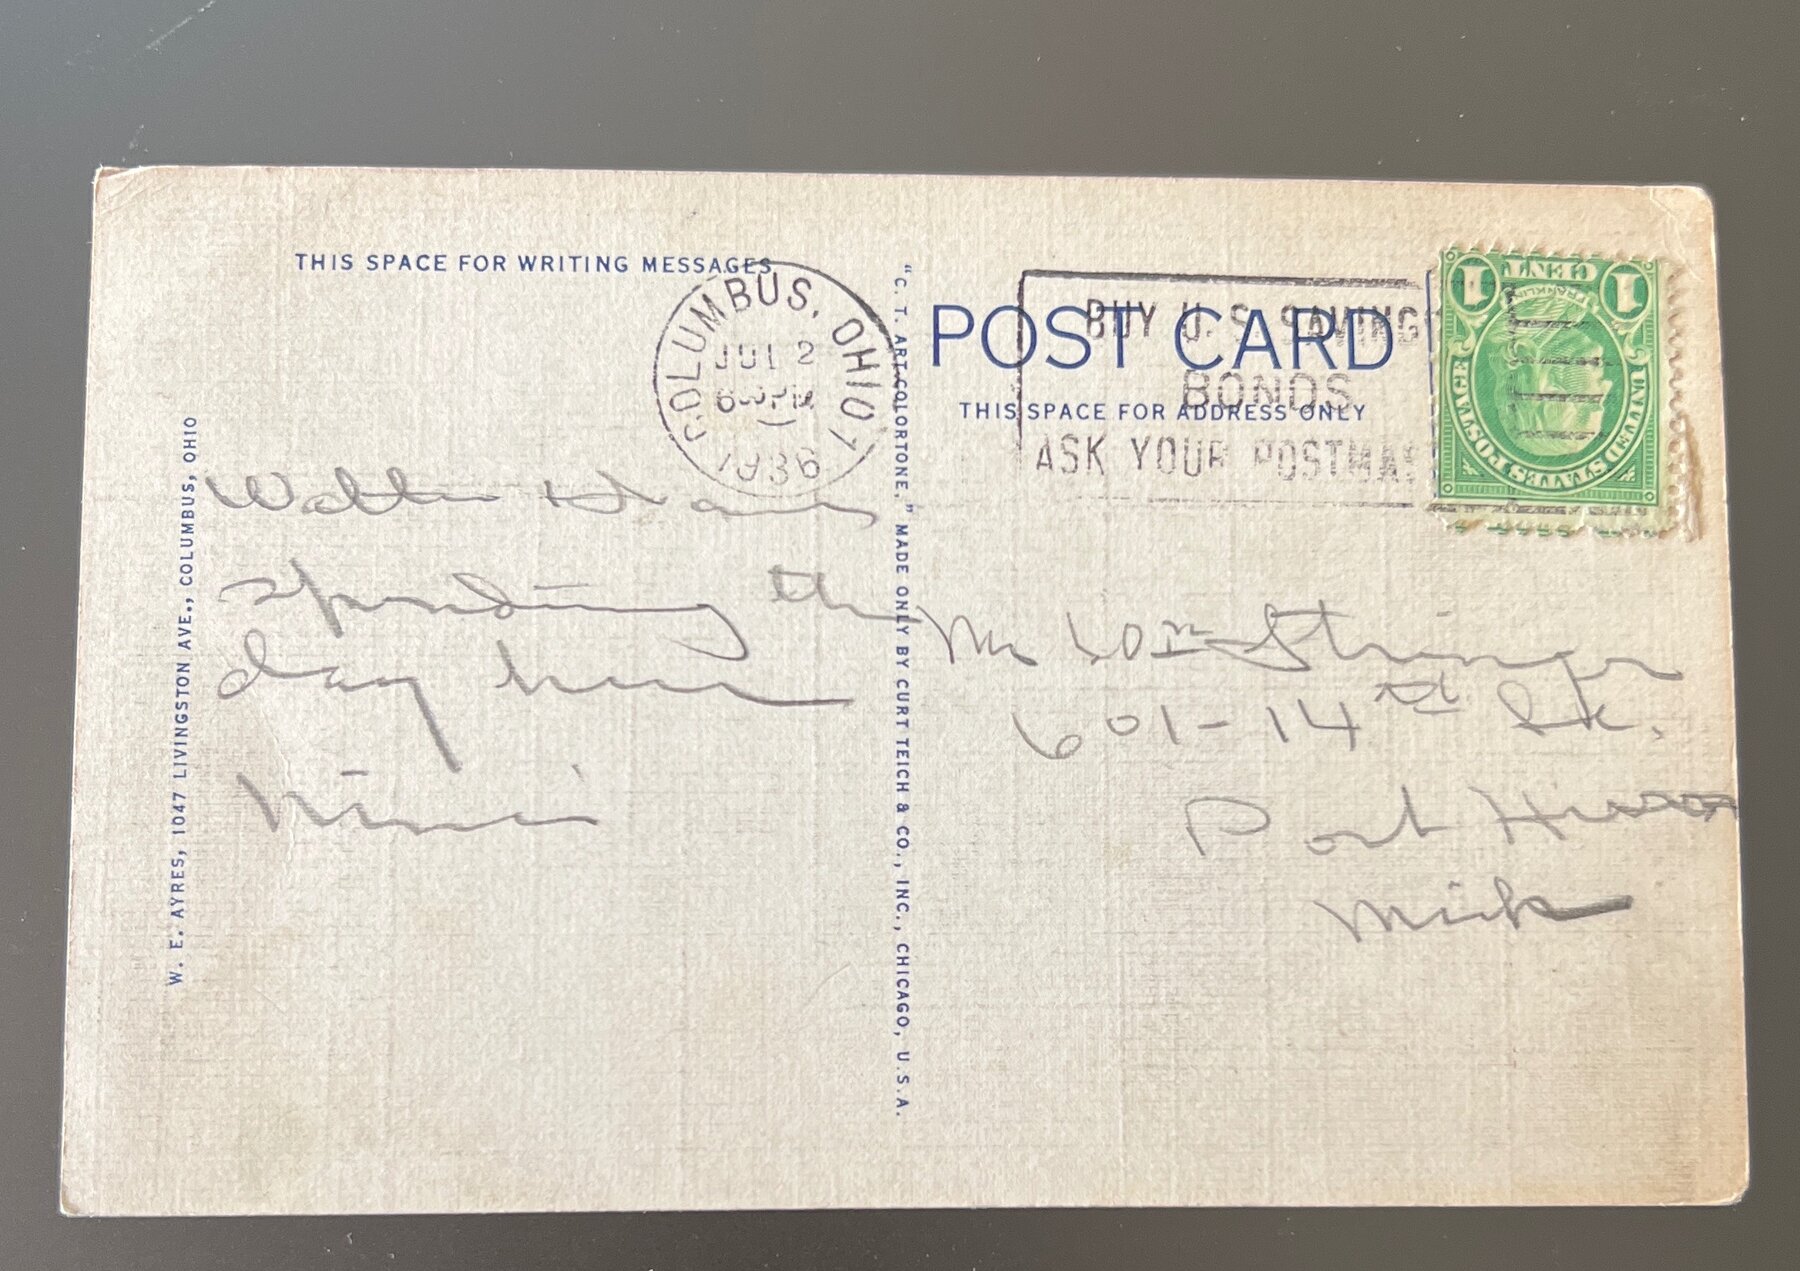 THIS SPACE FOR WRITING MESSAGES
COLUMBUS, OHIO 1
JUL 2
6 PM
1936
BUY U. S. SAVING
BONDS
ASK YOUR POSTMAS
POST CARD
THIS SPACE FOR ADDRESS ONLY
1 CENT 1
FRANKLIN
UNITED STATES POSTAGE
spending the
day here
Mr Wm Stringer
601-14th St.
Port Huron
Mich
W. E. AYRES, 1047 LIVINGSTON AVE., COLUMBUS, OHIO
"C. T. ART-COLORTONE." MADE ONLY BY CURT TEICH & CO., INC., CHICAGO, U.S.A.